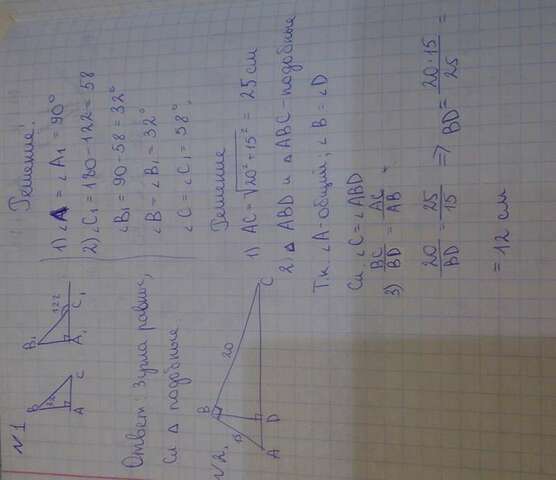 №1
B
A
C
B₁
122
A₁
C₁
Решение:
1) ∠A = ∠A₁ = 90°
2) ∠C₁ = 180-122 = 58
∠B₁ = 90-58 = 32°
∠B = ∠B₁ = 32°
∠C = ∠C₁ = 58°
Ответ: 3 угла равные,
Сл. △ подобные
№2.
B
20
A
D
C
Решение
1) AC = √20²+15² = 25 см
2) △ ABD и △ ABC - подобные
Т.к. ∠A-общий; ∠B = ∠D
Сл. ∠C = ∠ABD
3) BC/BD = AC/AB
20/BD = 25/15 => BD = 20·15/25 =
= 12 см